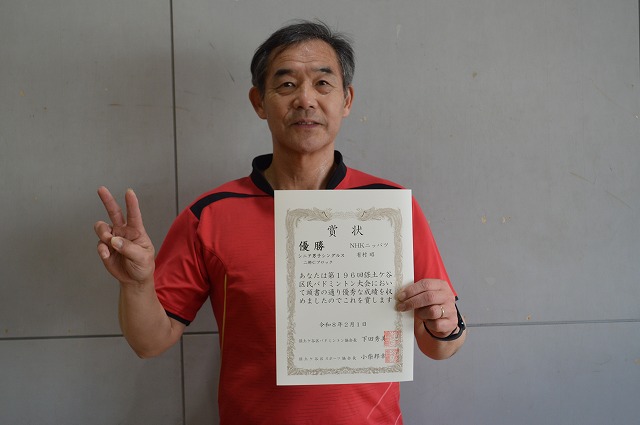 賞状
優勝 NHKニッパツ
シニア男子シングルス
二部Cブロック 有村 昭
あなたは第１９６回保土ケ谷
区民バドミントン大会におい
て頭書の通り優秀な成績を収
めましたのでこれを賞します
令和８年２月１日
保土ケ谷区バドミントン協会長 下田秀
保土ケ谷区スポーツ協会長 小柴邦